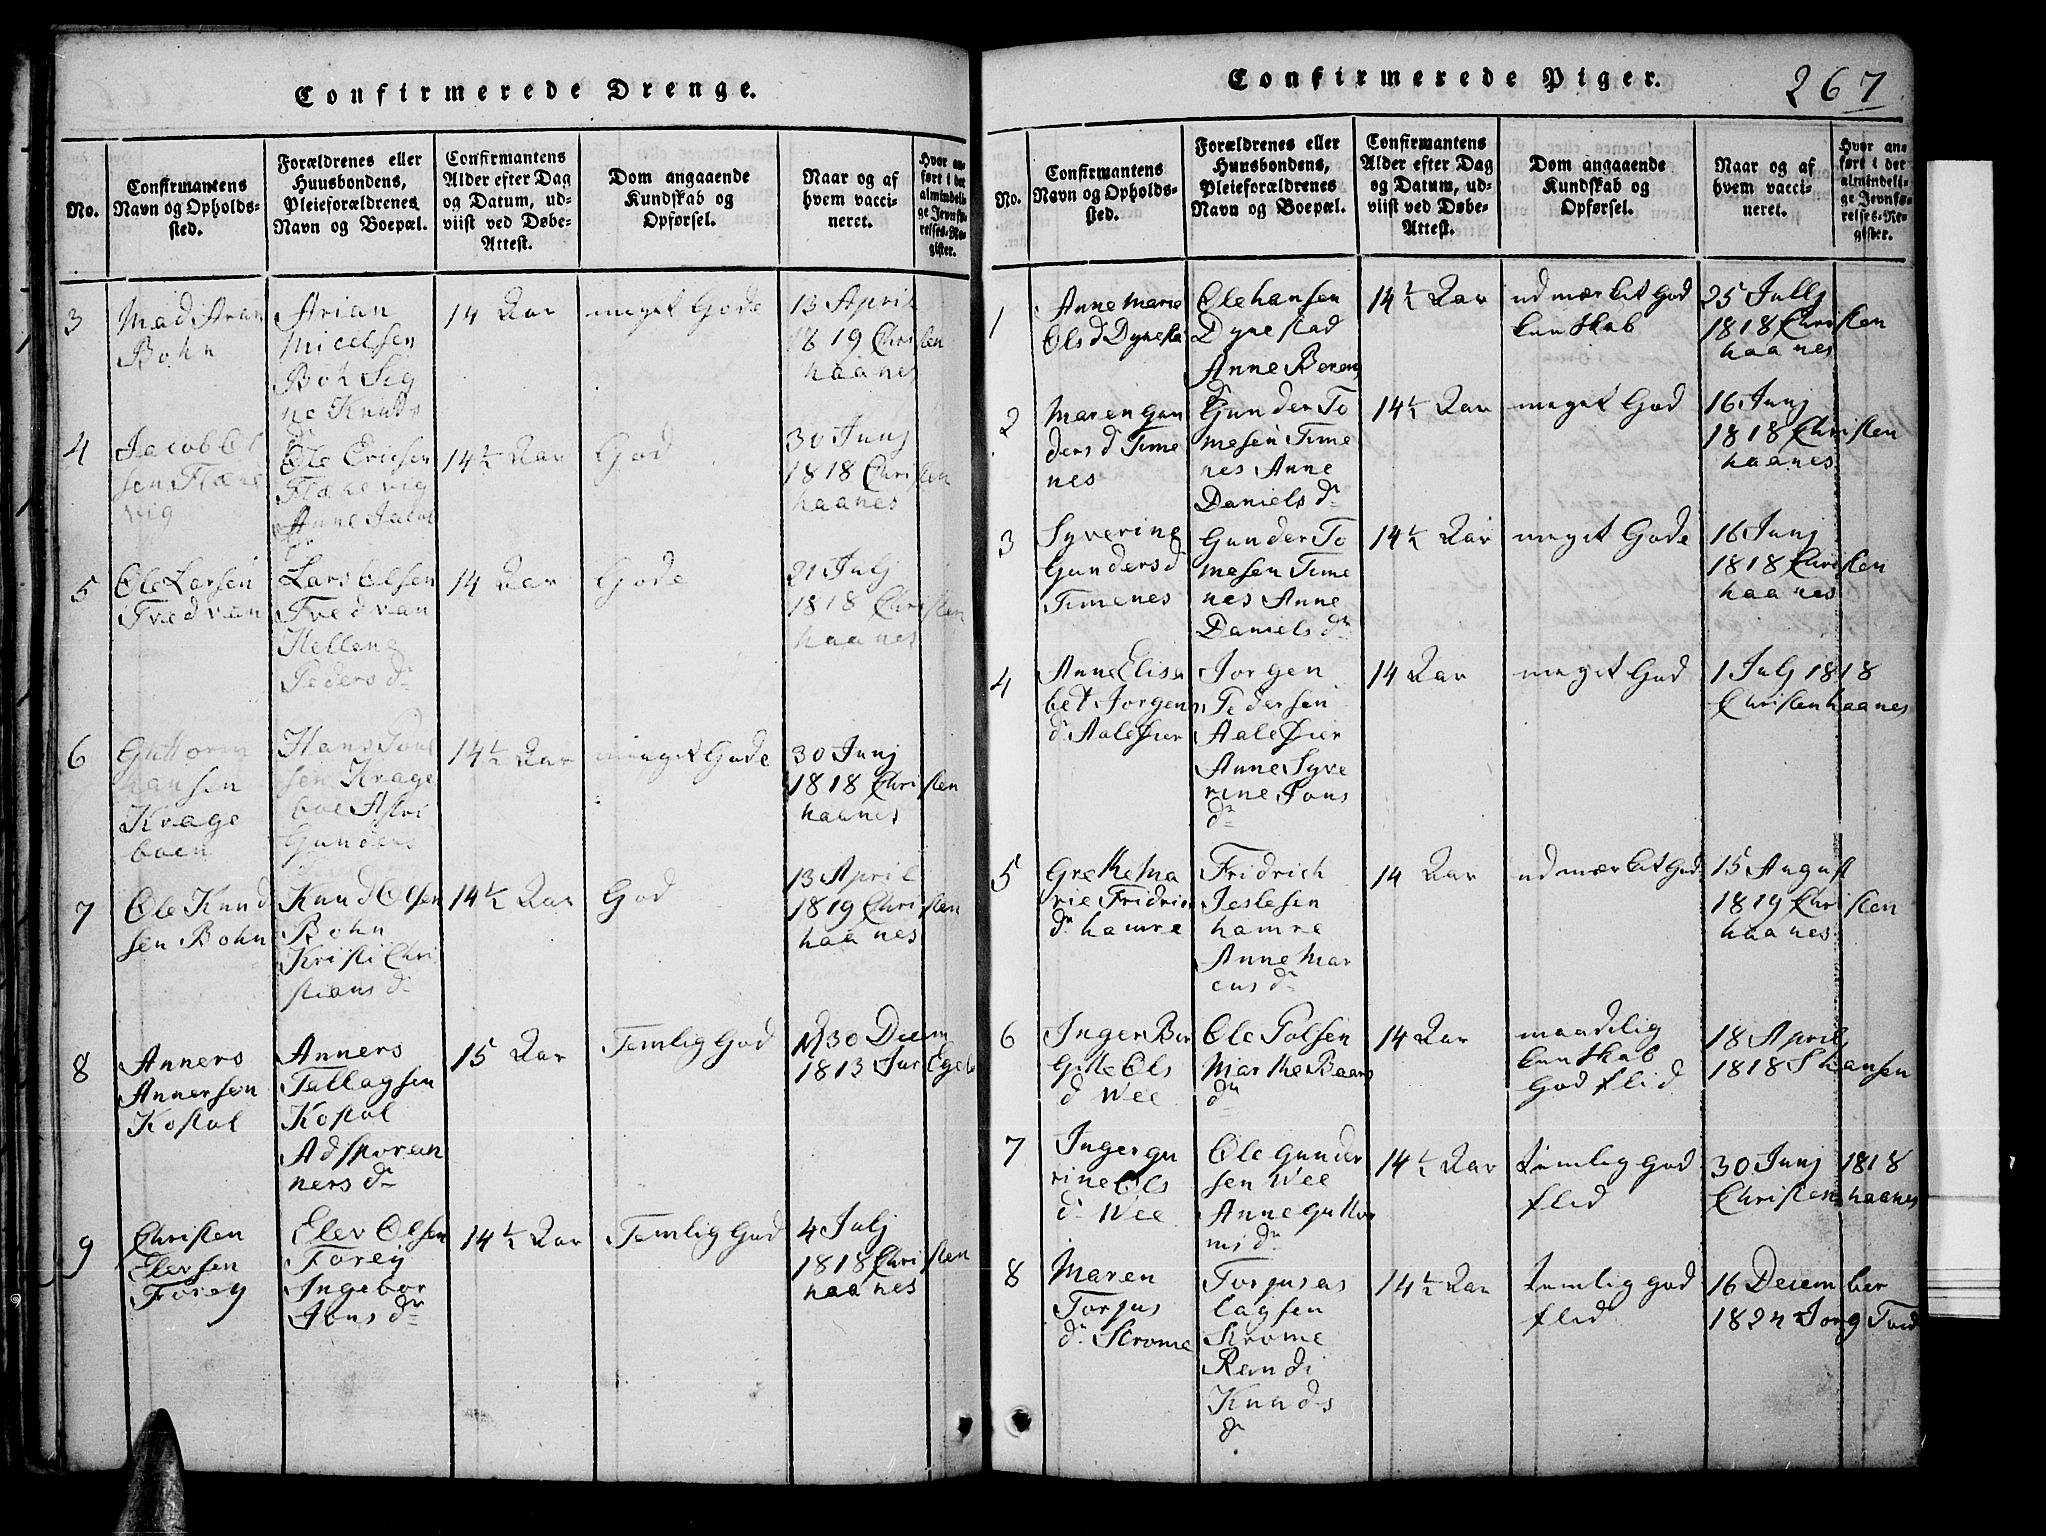 Confirmerede Drenge.
No.
Confirmantens
Navn og Opholds-
sted.
Forældrenes eller
Huusbondens,
Pleieforældrenes
Navn og Boepæl.
Confirmantens
Alder efter Dag
og Datum, ud-
viist ved Døbe-
Attest.
Dom angaaende
Kundskab og
Opførsel.
Naar og af
hvem vacci-
neret.
Hvor an-
ført i det
almindeli-
ge Jevnfø-
relses-Re-
gister.
3
Mad Arian
Bohn
Arian
Micelsen
Boh Sig
ne Knuds
dr
14 Aar
meget Gode
13 April
1819 Christen
haanes
4
Jacob Ol
sen Flæke
vig
Ole Ericsen
Flæke vig
Anne Jacobs
dr
14½ Aar
God
30 Junj
1818 Christen
haanes
5
Ole Larsen
Tved van
Lars Olsen
Tved van
Hellene
Peders dr
14 Aar
Gode
21 Julj
1818 Christen
haanes
6
Guttorm
hansen
Krage
boen
Hans Poul
sen Krage
boe Astri
Gunders
14½ Aar
meget Gode
30 Junj
1818 Christen
haanes
7
Ole Knud
sen Bohn
Knud Olsen
Bohn
Kristi Chri
stians dr
14½ Aar
God
13 April
1819 Christen
haanes
8
Anners
Annersen
Kostøl
Anners
Tallagsen
Kostøl
Ads
ners dr
15 Aar
Temlig God
30 Decem
1813
9
Christen
Elevsen
Forey
Elev Olsen
Forey
Ingebor
Jons dr
14½ Aar
Temlig God
4 Julj
1818 Christen
haanes
Confirmerede Piger.
267
No.
Confirmantens
Navn og Opholds-
sted.
Forældrenes eller
Huusbondens,
Pleieforældrenes
Navn og Boepæl.
Confirmantens
Alder efter Dag
og Datum, ud-
viist ved Døbe-
Attest.
Dom angaaende
Kundskab og
Opførsel.
Naar og af
hvem vacci-
neret.
Hvor an-
ført i det
almindeli-
ge Jevnfø-
relses-Re-
gister.
1
Anne Marie
Ols d Dynesta
Ole hansen
Dynestad
Anne Berens
dr
14½ Aar
udmærket God
kunskab
25 Jullj
1818 Christen
haanes
2
Maren Gun
ders d Time
nes
Gunder To
mesen Time
nes Anne
Daniels dr
14½ Aar
meget God
16 Junj
1818 Christen
haanes
3
Syverine
Gunders d
Timenes
Gunder To
mesen Time
nes Anne
Daniels dr
14½ Aar
meget Gode
16 Junj
1818 Christen
haanes
4
Ann Elisa
bet Jorgens
d Aalefier
Jorgen
Pedersen
Aalefier
Anne Syve
rine Jons
dr
14 Aar
meget God
1 Julj 1818
Christen haanes
5
Grethe Ma
rie Fridrics
dr hamre
Fridrich
Jeslesen
hamre
Anne Mar
cus dr
14 Aar
udmærket God
15 August
1819 Christen
haanes
6
Inger Bir
gitte Ols
d Wee
Ole Polsen
Marthe Baars
dr
14 Aar
maadelig
kunskab
God flid
18 April
1818 S hansen
7
Inger gu
rine Ols
dr Wee
Ole Gunder
sen Wee
Anne Guttor
ms dr
14½ Aar
temlig god
flid
30 Junj 1818
Christen haanes
8
Maren
Torjus
dr Strome
Torjus as
lagsen
Strome
Randi
Knuds
dr
14½ Aar
temlig god
flid
16 Decem ber
1824 Jorg